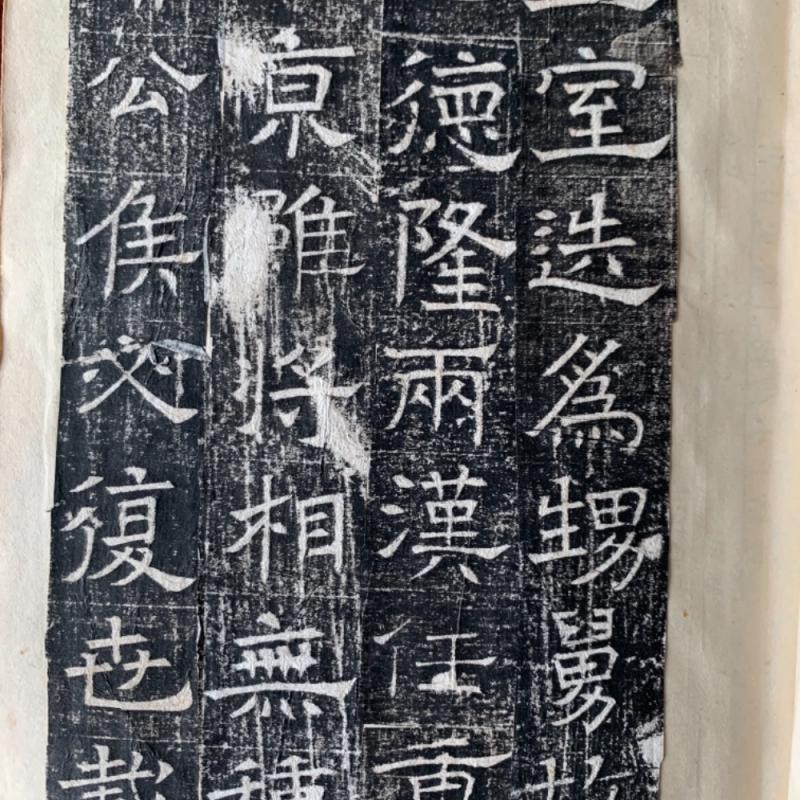 室迭爲甥舅
德隆兩漢任重
亰雖將相無種
公侯必復世載